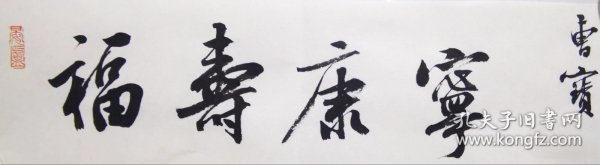 福壽康寧
曹寶
孔夫子旧书网
kongfz.com